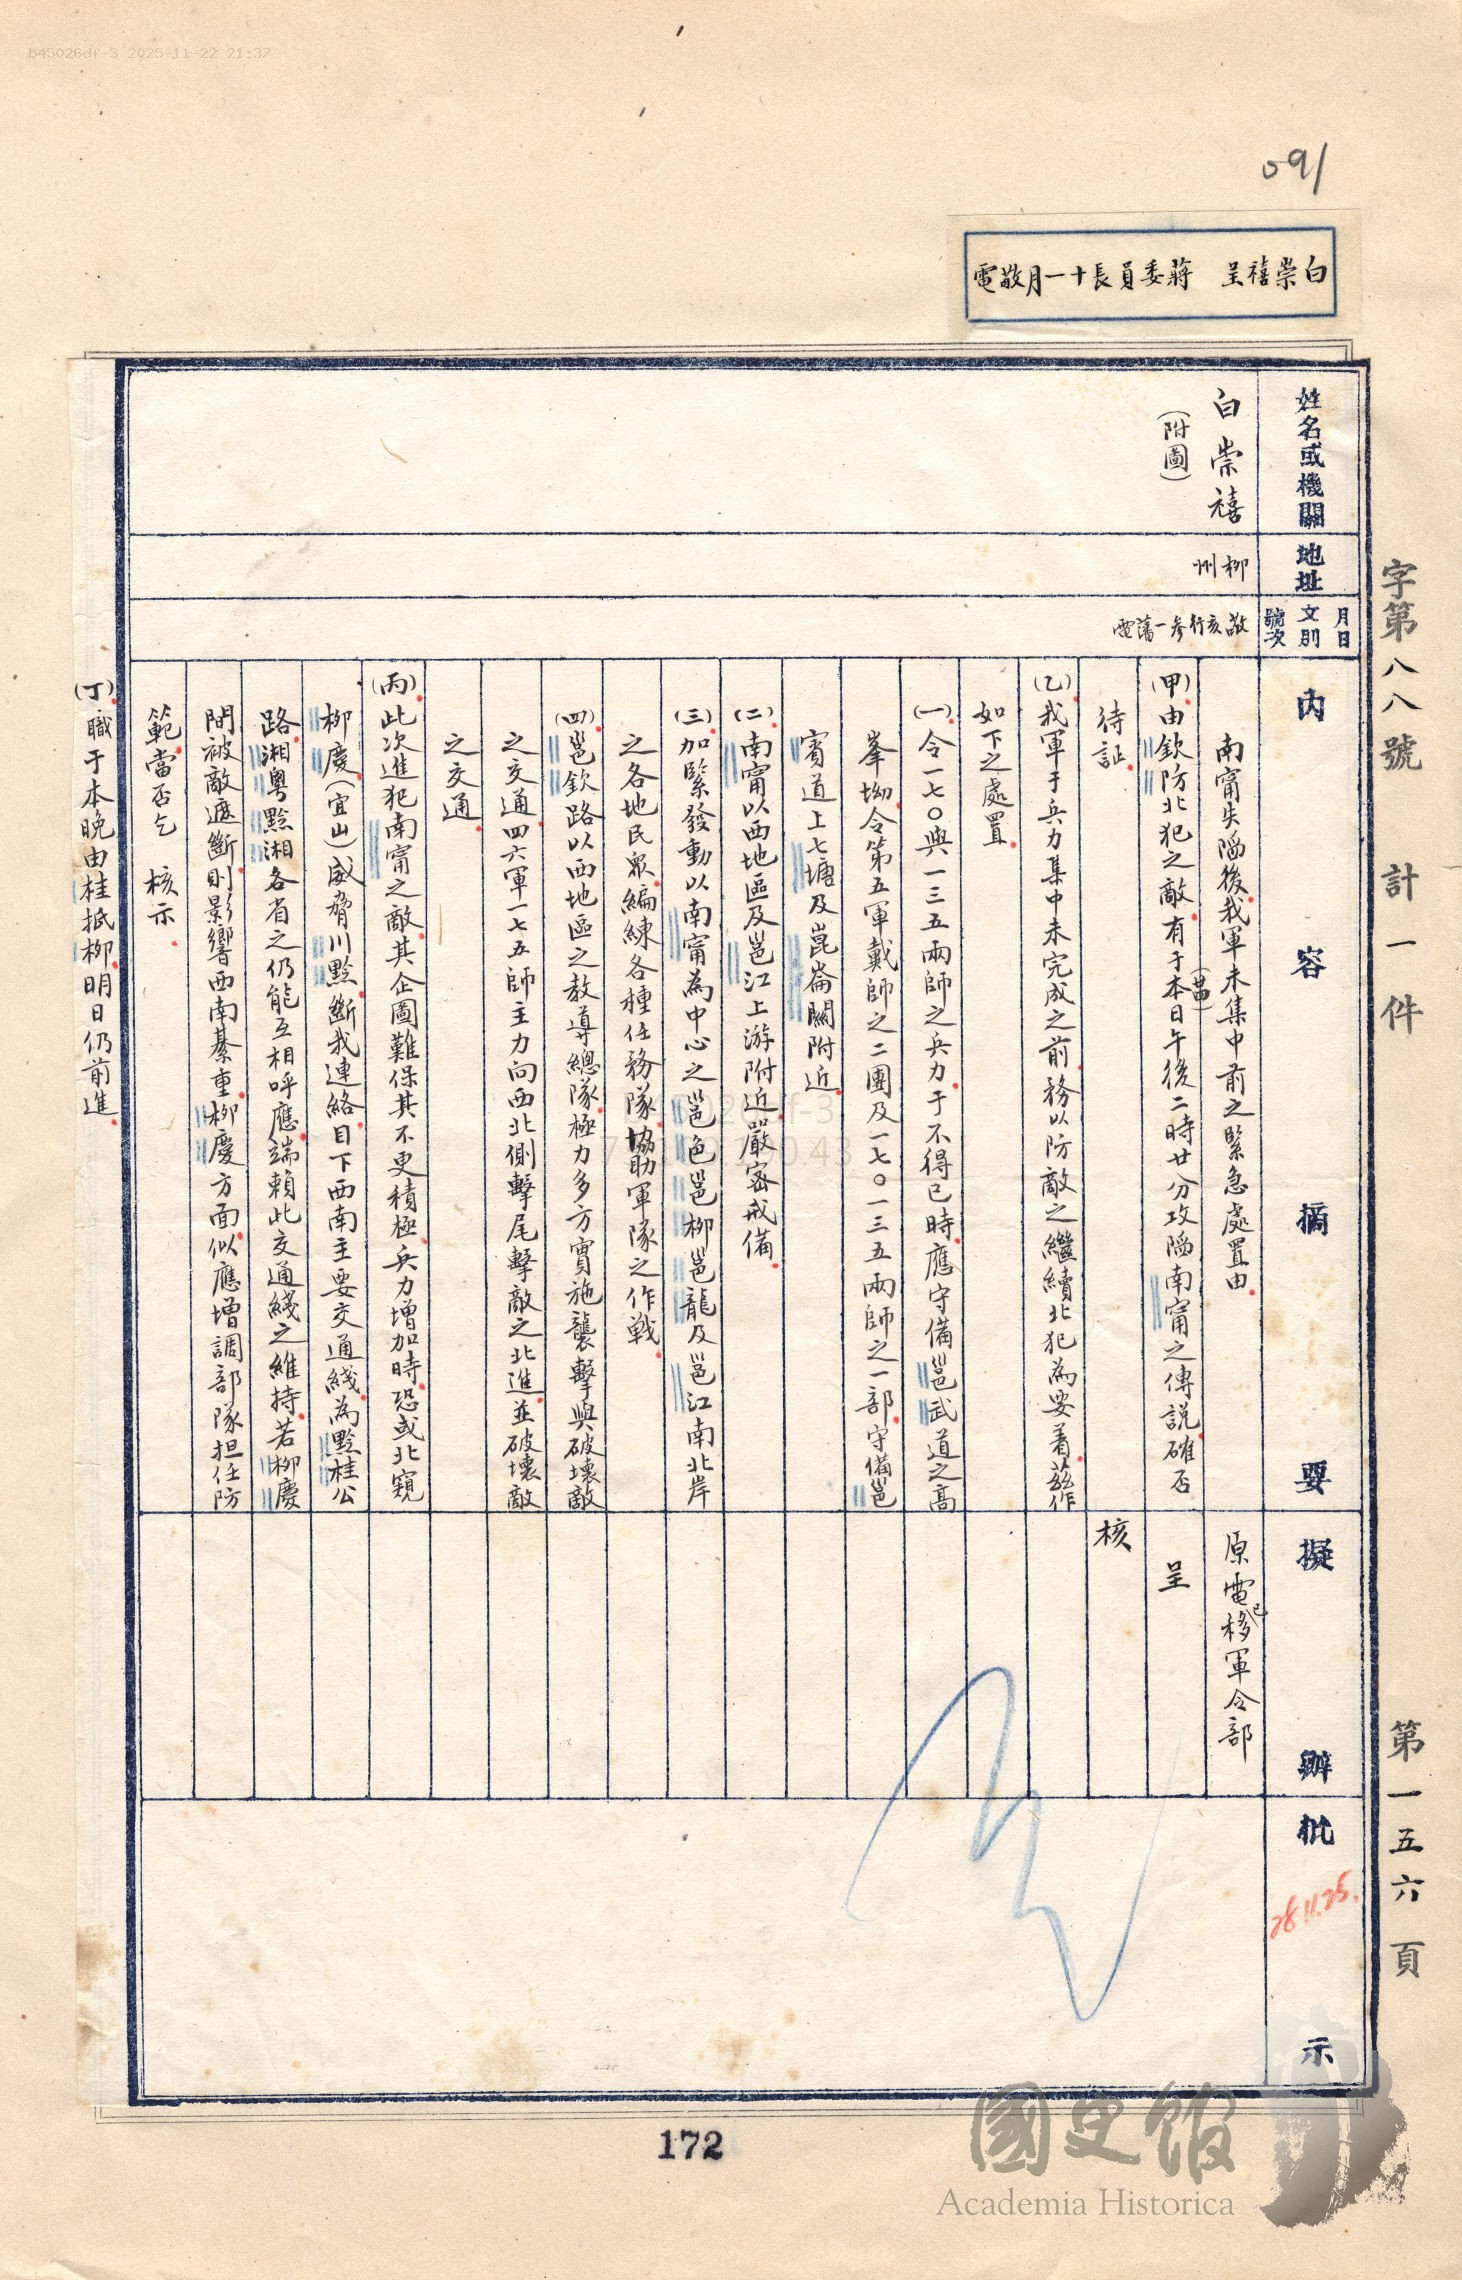 b45026df-3 2025-11-22 21:37
091
白崇禧呈　蔣委員長十一月敬電
字第八八號　計一件　第一五六頁
姓名或機關
地址
月日
文別
號次
內容摘要
擬辦
批示
28.11.25.
白崇禧
（附圖）
柳州
敬亥行參一藩電
南甯失陷後我軍未集中前之緊急處置由
（甲）由欽防北犯之敵有于本（廿四）日午後二時廿分攻陷南甯之傳說確否
待証
（乙）我軍于兵力集中未完成之前務以防敵之繼續北犯為要着茲作
如下之處置
（一）令一七〇與一三五兩師之兵力于不得已時應守備邕武道之高
峯坳令第五軍戴師之二團及一七〇一三五兩師之一部守備邕
賓道上七塘及崑崙關附近
（二）南甯以西地區及邕江上游附近嚴密戒備
（三）加緊發動以南甯為中心之邕色邕柳邕龍及邕江南北岸
之各地民眾編練各種任務隊協助軍隊之作戰
（四）邕欽路以西地區之教導總隊極力多方實施襲擊與破壞敵
之交通四六軍一七五師主力向西北側擊尾擊敵之北進並破壞敵
之交通
（丙）此次進犯南甯之敵其企圖難保其不更積極兵力增加時恐或北窺
柳慶（宜山）威脅川黔斷我連絡目下西南主要交通綫為黔桂公
路湘粵黔湘各省之仍能互相呼應端賴此交通綫之維持若柳慶
間被敵遮斷則影響西南綦重柳慶方面似應增調部隊担任防
範當否乞　核示
（丁）職于本晚由桂抵柳明日仍前進
原電已移軍令部
呈
核
172
國史館
Academia Historica